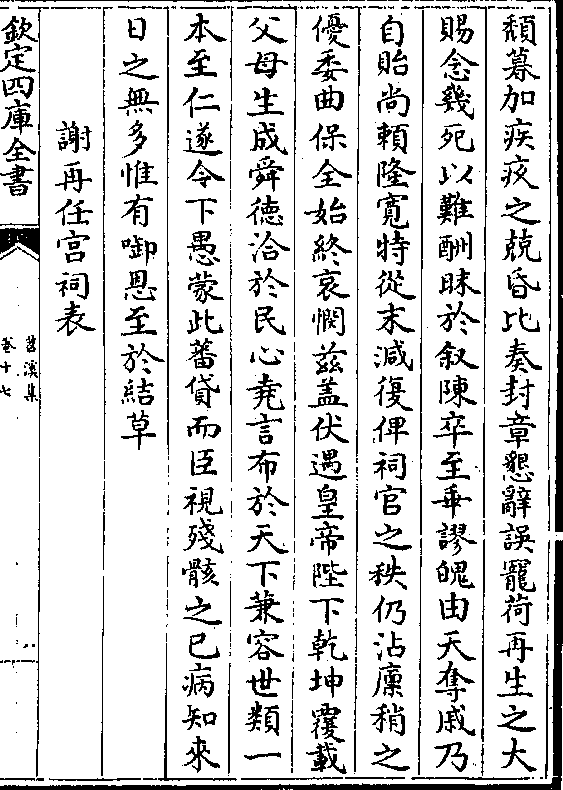 頽募加疾疢之兢昏比奏封章懇辭誤寵荷再生之大
賜念幾死以難酬昧於叙陳卒至乖謬魄由天奪戚乃
自貽尚頼隆寛特從末減復俾祠官之秩仍沾廩稍之
優委曲保全始終哀憫兹盖伏遇皇帝陛下乾坤覆載
父母生成舜德洽於民心堯言布於天下兼容世類一
本至仁遂令下愚蒙此蕃貸而臣視殘骸之已病知來
日之無多惟有啣恩至於結草
謝再任宫祠表
欽定四庫全書
苕溪集
卷十七